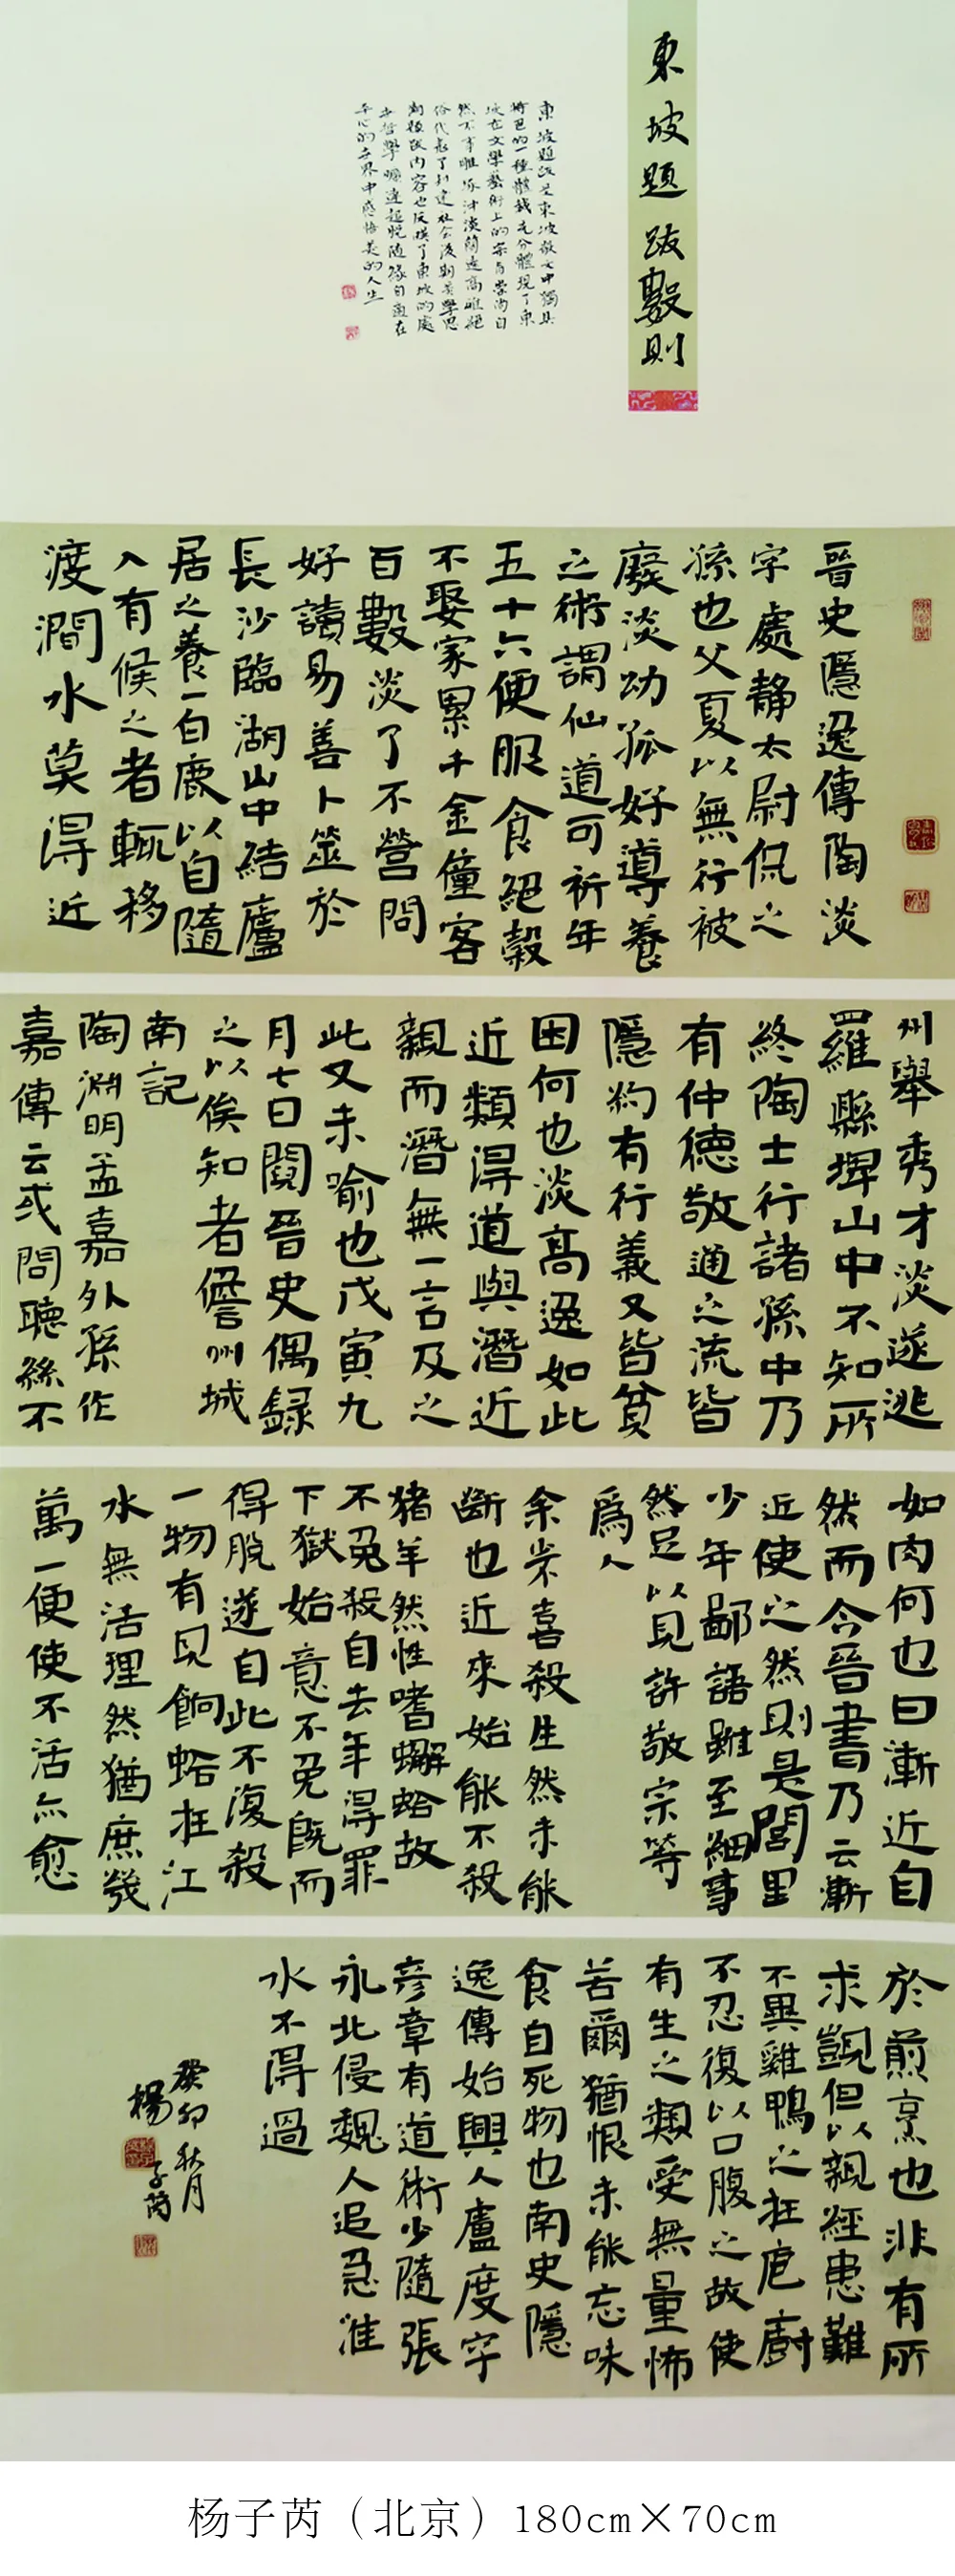 東坡題跋數則
東坡題跋是東坡散文中獨具
特色的一種體裁充分體現了東
坡在文學藝術上的宗旨崇尚自
然不事雕琢沖淡簡遠高雅絕
俗代表了封建社會後期美學思
對題跋內容也反映了東坡的處
世哲學曠達超悅隨緣自適在
平心的世界中感悟美的人生
晉史隱逸傳陶淡
字處静太尉侃之
孫也父夏以無行被
廢淡幼孤好導養
之術謂仙道可祈年
五十六便服食絕穀
不娶家累千金僮客
百數淡了不營問
好讀易善卜筮於
長沙臨湖山中結廬
居之養一白鹿以自隨
人有候之者輒移
渡澗水莫得近
州舉秀才淡遂逃
羅縣埤山中不知所
終陶士行諸孫中乃
有仲德敬通之流皆
隱約有行義又皆貧
困何也淡高逸如此
近類得道與潛近
親而潛無一言及之
此又未喻也戊寅九
月七日閱晉史偶録
之以俟知者儋州城
南記
陶淵明孟嘉外孫作
嘉傳云或問聽絲不
如肉何也曰漸近自
然而今晉書乃云漸
近使之然則是閭里
少年鄙語雖至細事
然足以見許敬宗等
爲人
余少不喜殺生然未能
斷也近來始能不殺
猪羊然性嗜蠏蛤故
不免殺自去年得罪
下獄始意不免既而
得脫遂自此不復殺
一物有見餉蛤在江
水無活理然猶庶幾
萬一便使不活亦愈
於煎烹也非有所
求覬但以親經患難
不異雞鴨之在庖廚
不忍復以口腹之故使
有生之類受無量怖
苦爾猶恨未能忘味
食自死物也南史隱
逸傳始興人盧度字
彦章有道術少隨張
永北侵魏人追急淮
水不得過
癸卯秋月
楊子芮
杨子芮（北京）180cm×70cm